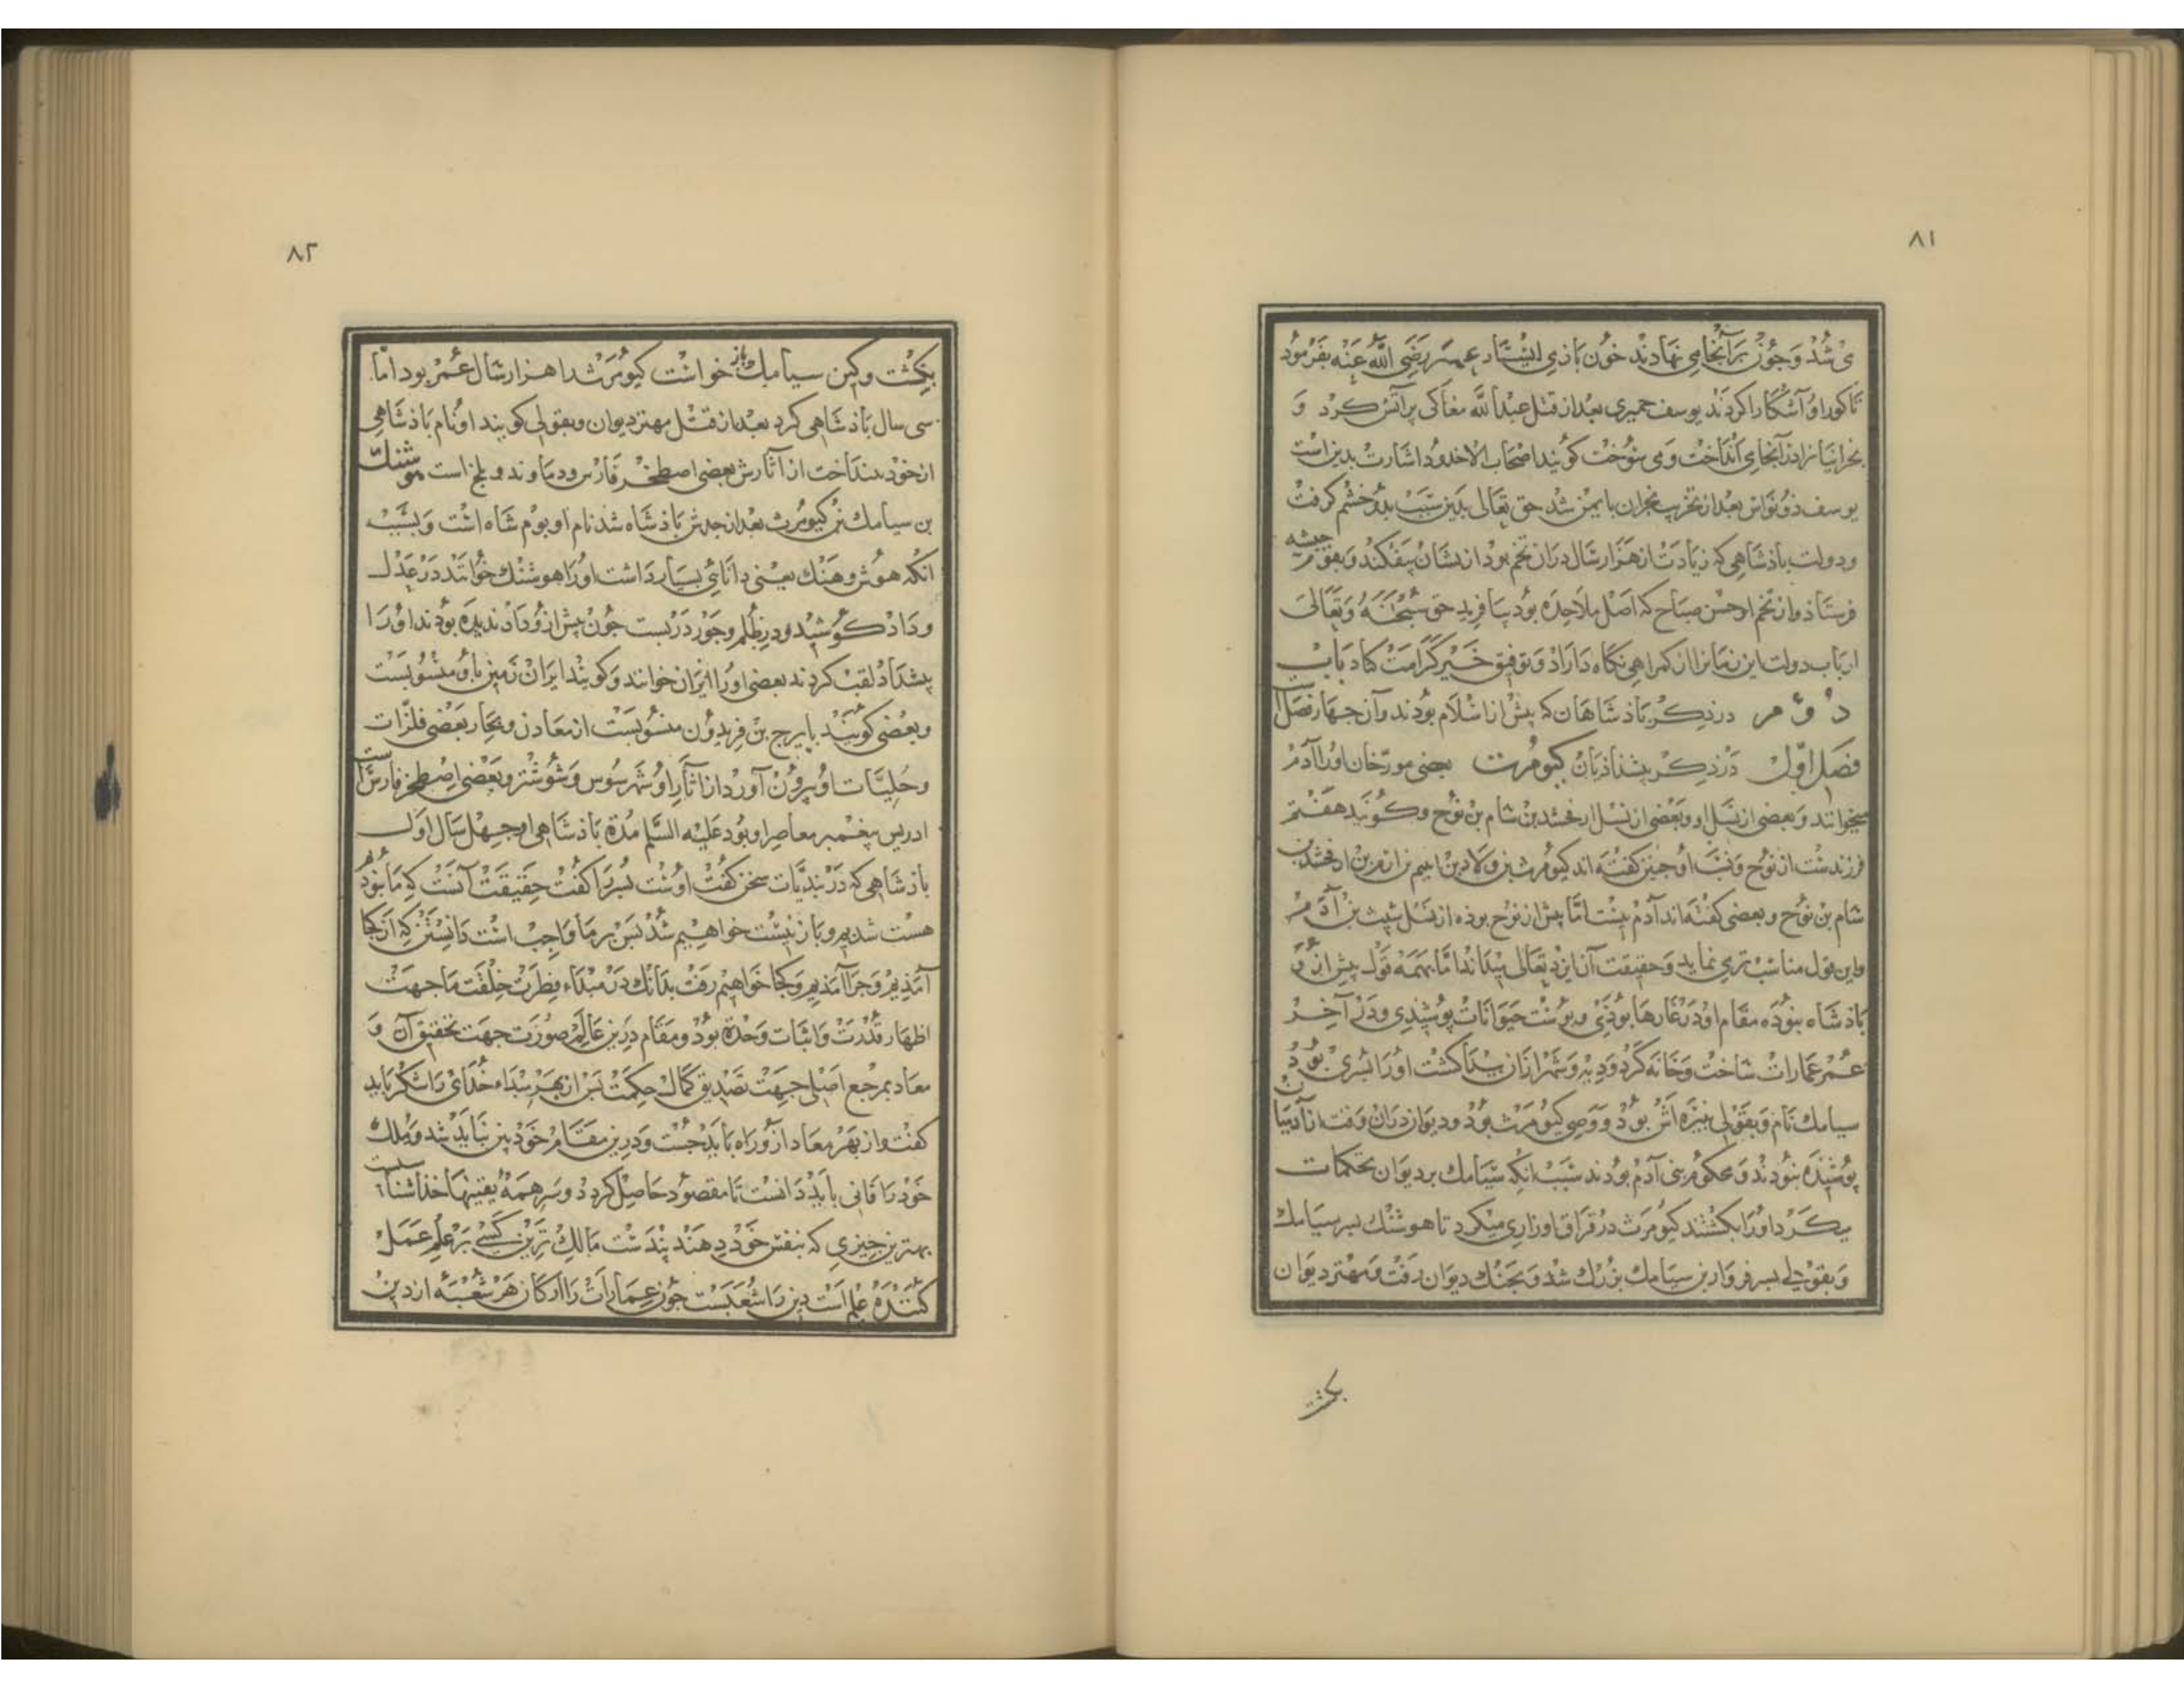 ۸۱
می شد و چون بر آنجا می نهادند خون باز می ایستاد عمر رضی الله عنه بفرمود
تا کور او آشکارا کردند یوسف حمیری بعد از قتل عبدالله مغاکی پر آتش کرد و
نجرانیانرا در آنجا می انداخت و می سوخت کویند اصحاب الاخدود اشارت بدین است
یوسف ذونواس بعد از تخریب نجران با یمن شد حق تعالی بدین سبب بدو خشم کرفت
و دولت باذشاهی که زیادت از هزار سال دران تخم بود ازیشان بیفکند و بقوم حبشه
فرستاذ و از تخم او حسن صباح که اصل ملاحده بود بیافرید حق سبحانه و تعالی
ارباب دولت این زمانرا از کمراهی نکاه داراد و توفیق خیر کرامت کناد باب
دوم در ذکر باذشاهان که پیش از اسلام بودند و آن چهار فصل است
فصل اول در ذکر پیشداذیان کیومرث بعضی مورخان او را آدم
میخوانند و بعضی از نسل او و بعضی از نسل ارفخشد بن سام بن نوح و کویند هفتم
فرزندست از نوح و نسب او چنین کفته اند کیومرث بن ولاد بن امیم بن ارم بن ارفخشد بن
سام بن نوح و بعضی کفته اند آدم نیست اما پیش از نوح بوذه از نسل شیث بن آدم
و این قول مناسب تر می نماید و حقیقت آن ایزد تعالی میداند اما بهمه قول پیش ازو
باذشاه نبوده مقام او در غارها بوذی و پوست حیوانات پوشیدی و در آخر
عمر عمارات ساخت و خانه کرد و دیه و شهر ازان پیدا کشت او را پسری بود
سیامک نام و بقولی نبیره اش بود و وصی کیومرث بود و دیوان دران وقت از آدمیان
پوشیده نبودند و محکوم بنی آدم بودند سبب انکه سیامک بر دیوان تحکمات
میکرد او را بکشتند کیومرث در فراق او زاری میکرد تا هوشنک پسر سیامک
و بقولی پسر فروار بن سیامک بزرک شد و بجنک دیوان رفت و مهتر دیوان
بکشت
۸۲
بکشت و کین سیامک باز خواست کیومرث را هزار سال عمر بود اما
سی سال باذشاهی کرد بعد از قتل مهتر دیوان و بقولی کویند او نام باذشاهی
از خود بینداخت از آثارش بعضی اصطخر فارس و دماوند و بلخ است هوشنک
بن سیامک بن کیومرث بعد از جدش باذشاه شد نام او بوم شاه است و بسبب
انکه هوش و هنک یعنی دانائی بسیار داشت او را هوشنک خواندند در عدل
و داد کوشید و در ظلم و جور در بست چون پیش ازو داد ندیده بودند او را
پیشداد لقب کردند بعضی او را ایران خوانند و کویند ایران زمین باو منسوبست
و بعضی کویند بایرج بن فریدون منسوبست از معادن و بحار بعضی فلزات
و حلیات او بیرون آورد از آثار او شهر سوس و شوشتر و بعضی اصطخر فارس است
ادریس پیغمبر معاصر او بود علیه السلم مدة باذشاهی او چهل سال اول
باذشاهی که در بندیّات سخن کفت اوست پسر را کفت حقیقت آنست که ما نبوده
هست شدیم و باز نیست خواهیم شد پس بر ما واجب است دانستن که از کجا
آمذیم و چرا آمذیم و کجا خواهیم رفت بدانک در مبداء فطرت خلقت ما جهت
اظهار قدرت و اثبات وحدة بود و مقام درین عالم صورت جهت تحقیق آن و
معاد بمرجع اصلی جهت تصدیق کمال حکمت پس از بهر مبداء خدای را شکر باید
کفت و از بهر معاد ازو راه باید جست و درین مقام خود بین نباید شد و ملک
خود را فانی باید دانست تا مقصود حاصل کردد و سر همه یقینها خذا شناسیست
بهترین چیزی که بنفس خود دهند پندست مالک ترین کسی بر علم عمل
کننده علم است دین را شعبست چون عمارات را ارکان هر شعبه از دین